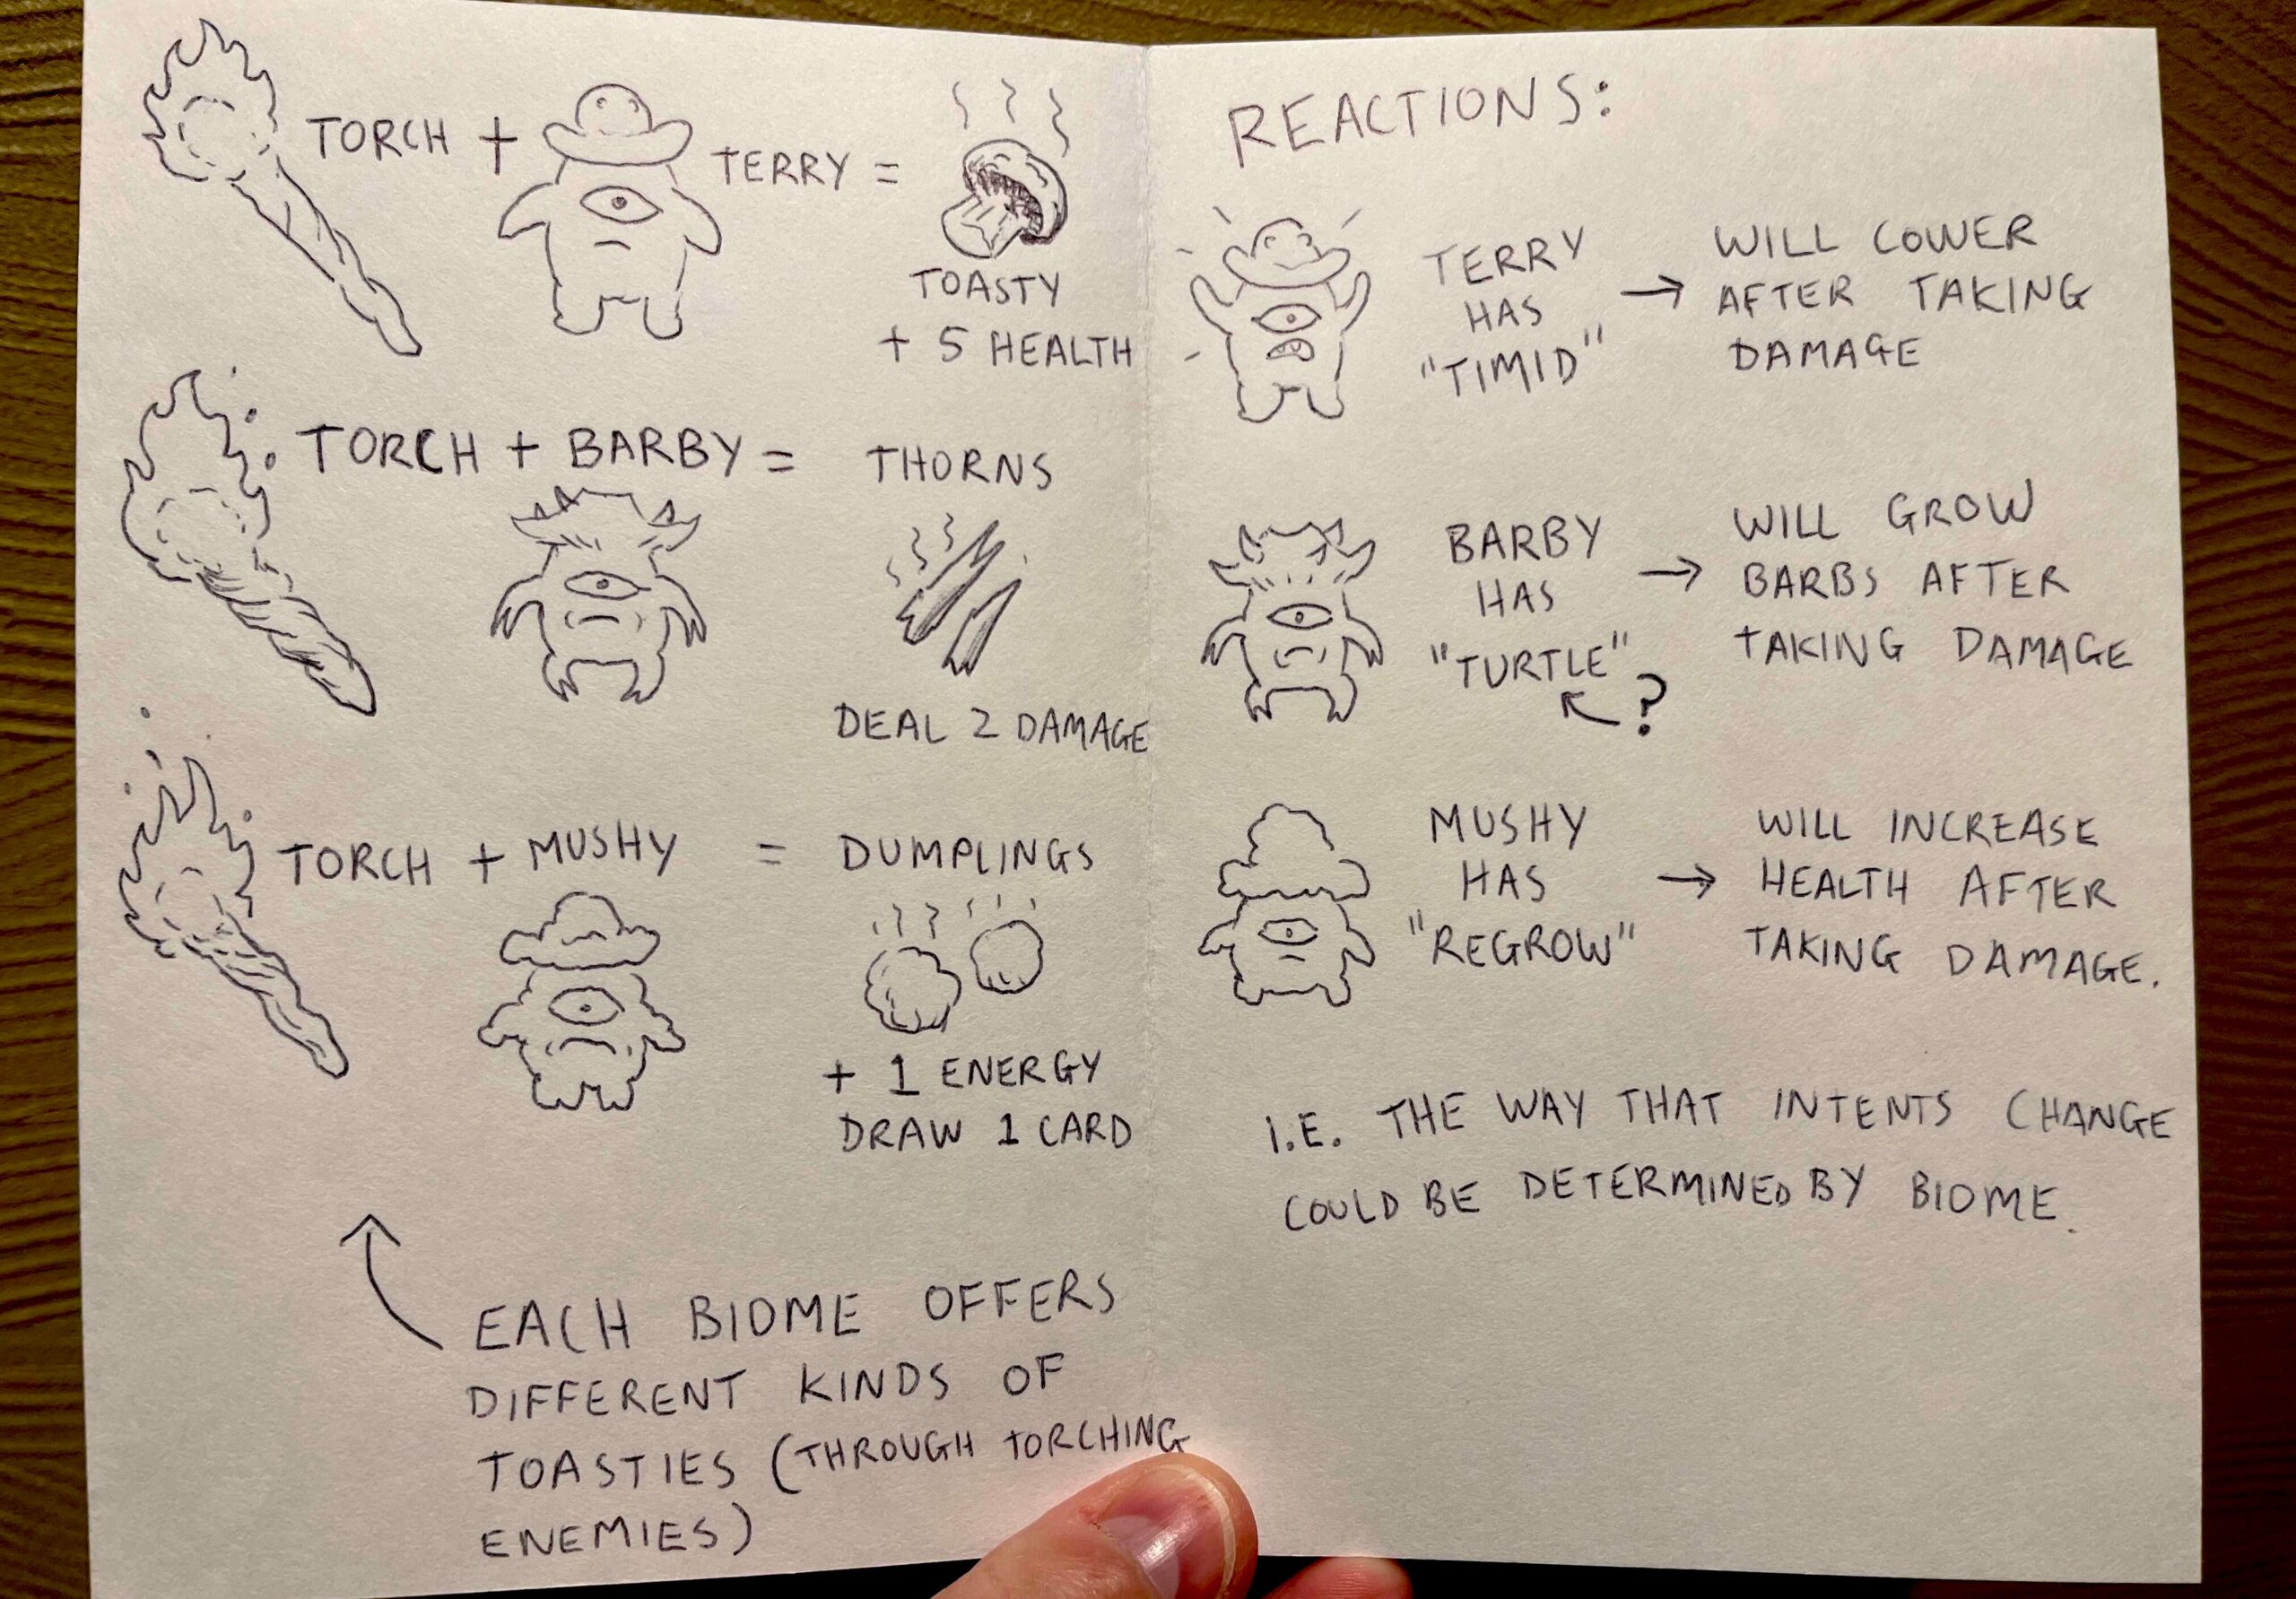 TORCH + TERRY =
TOASTY
+ 5 HEALTH
TORCH + BARBY = THORNS
DEAL 2 DAMAGE
TORCH + MUSHY = DUMPLINGS
+ 1 ENERGY
DRAW 1 CARD
EACH BIOME OFFERS
DIFFERENT KINDS OF
TOASTIES (THROUGH TORCHING
ENEMIES)
REACTIONS:
TERRY
HAS
"TIMID"
→ WILL COWER
AFTER TAKING
DAMAGE
BARBY
HAS
"TURTLE"
?
→ WILL GROW
BARBS AFTER
TAKING DAMAGE
MUSHY
HAS
"REGROW"
→ WILL INCREASE
HEALTH AFTER
TAKING DAMAGE.
I.E. THE WAY THAT INTENTS CHANGE
COULD BE DETERMINED BY BIOME.